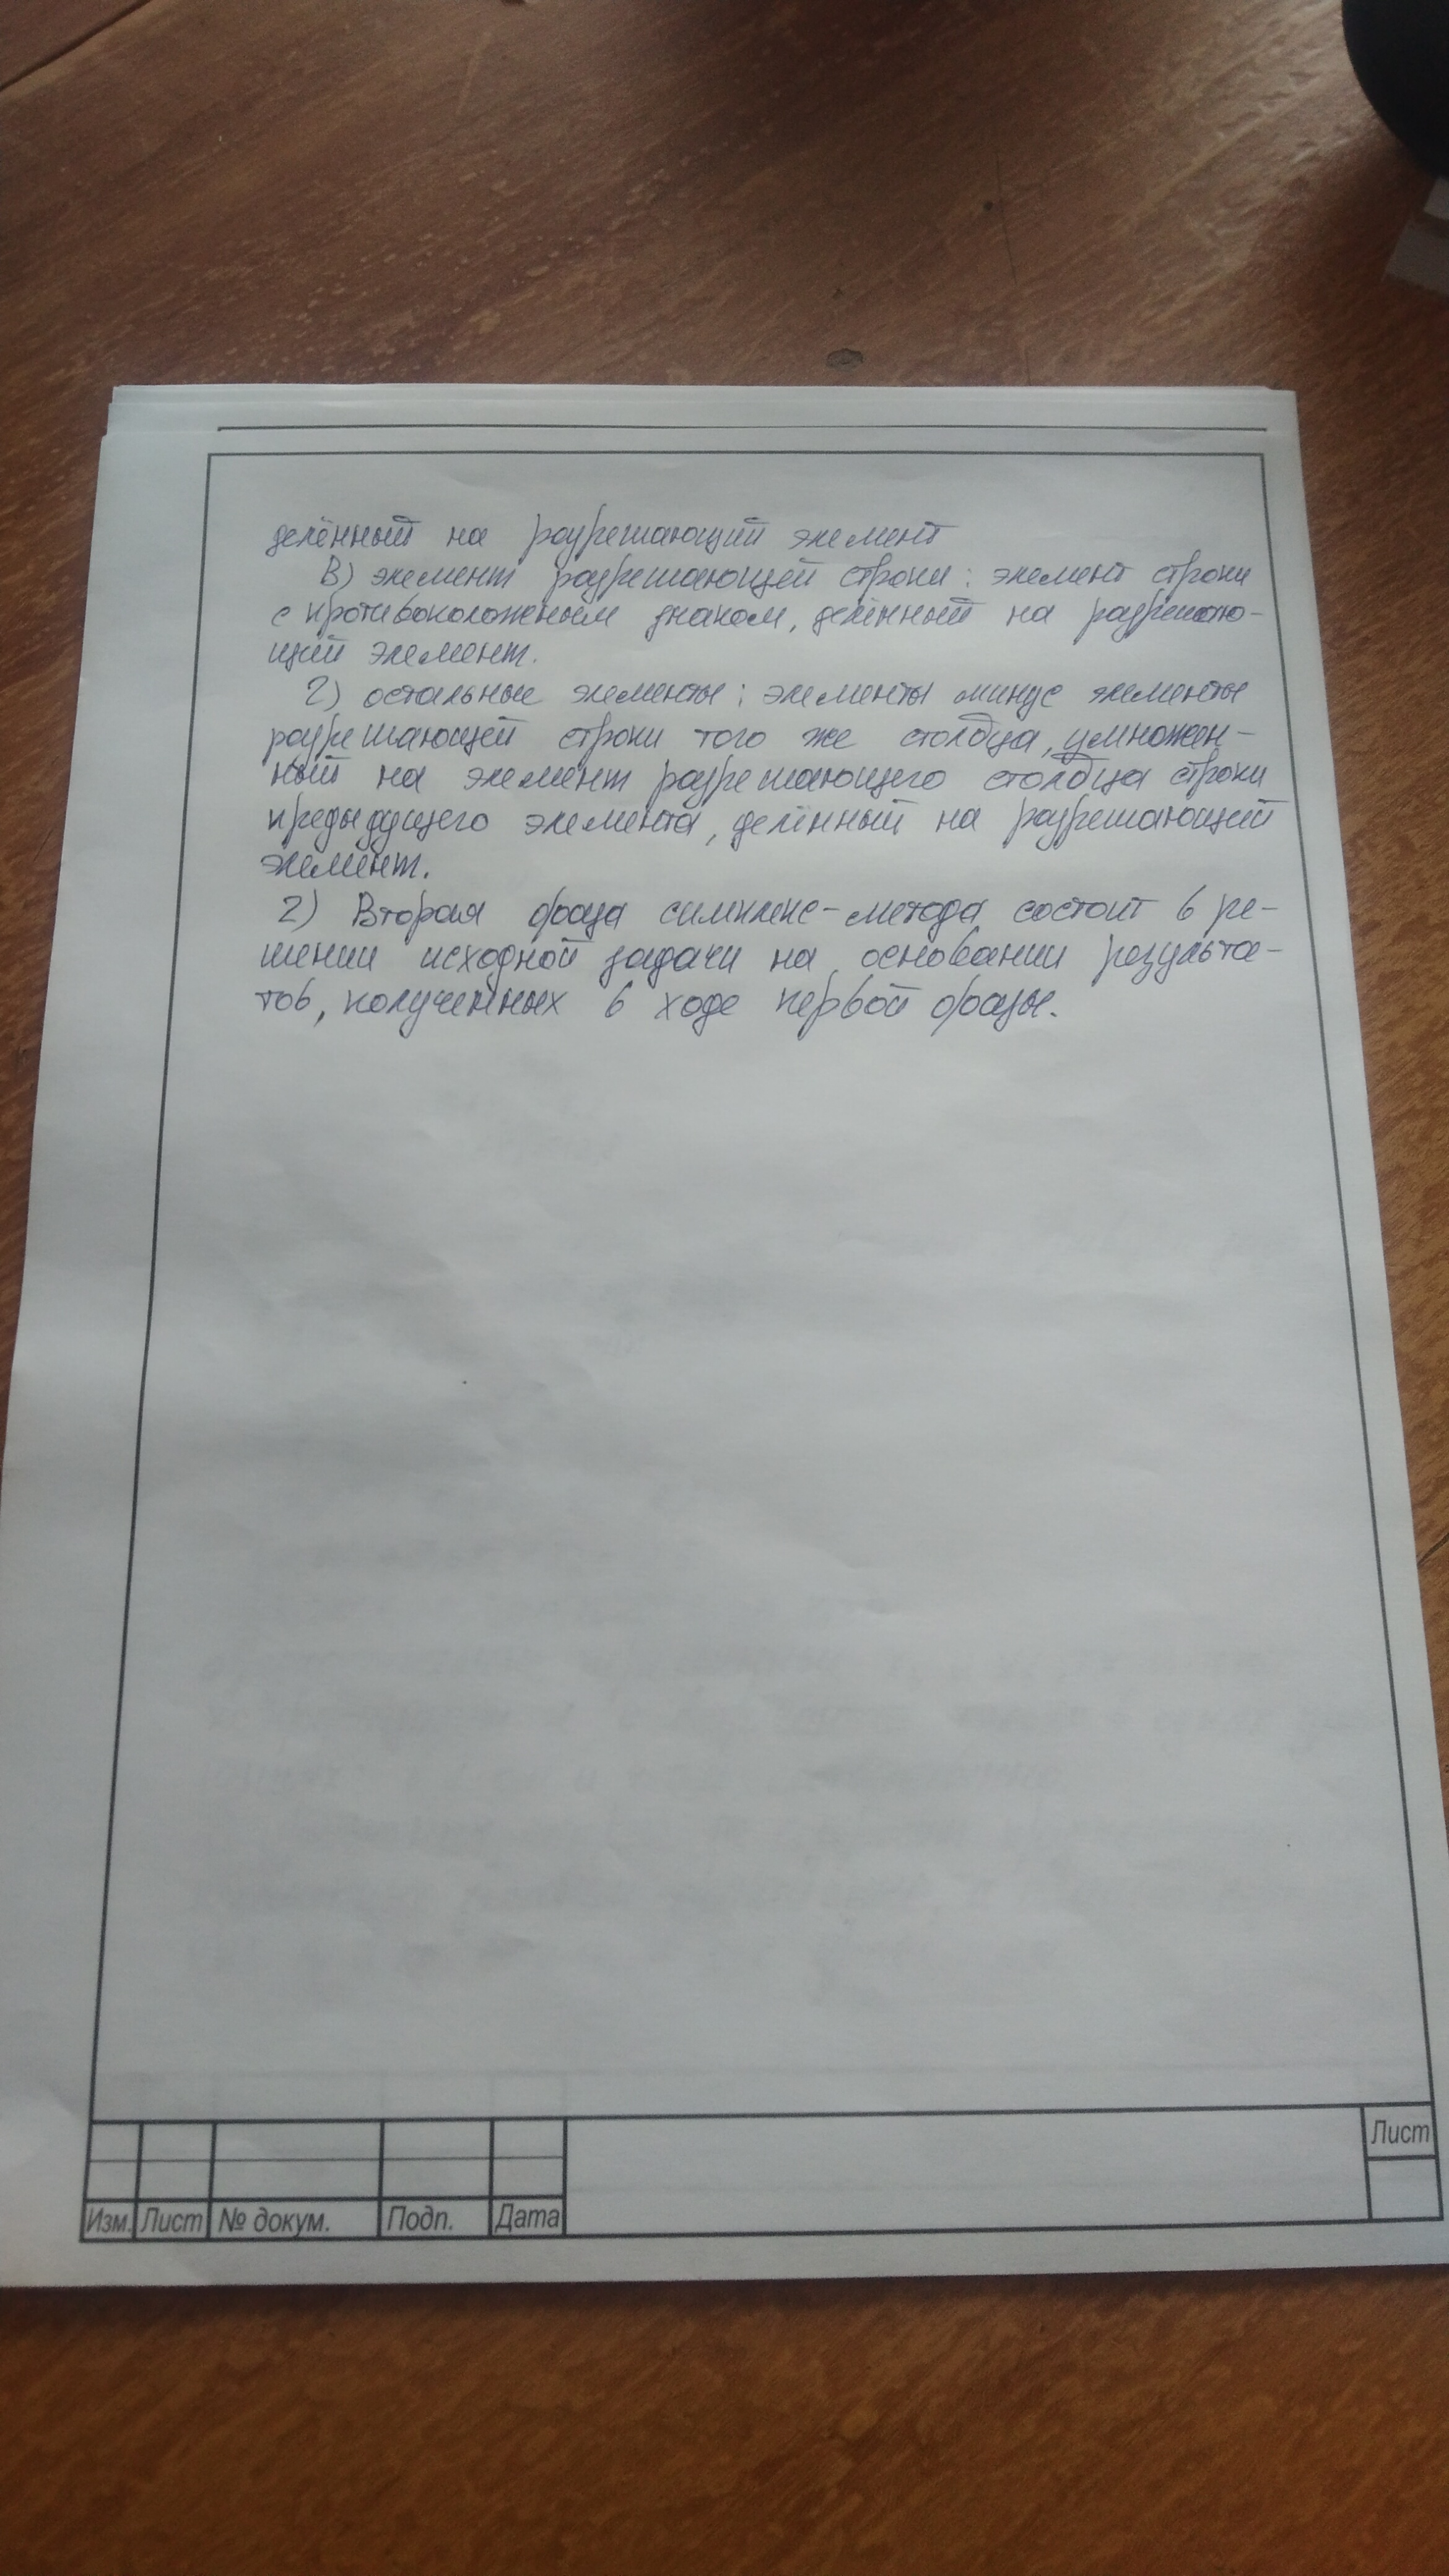 делённый на разрешающий элемент
В) элемент разрешающей строки: элемент строки
с противоположным знаком, делённый на разрешаю-
щий элемент.
2) остальные элементы: элементы минус элементы
разрешающей строки того же столбца, умножен-
ный на элемент разрешающего столбца строки
предыдущего элемента, делённый на разрешающий
элемент.
2) Вторая фаза симплекс-метода состоит в ре-
шении исходной задачи на основании результа-
тов, полученных в ходе первой фазы.
Лист
Изм. Лист № докум. Подп. Дата